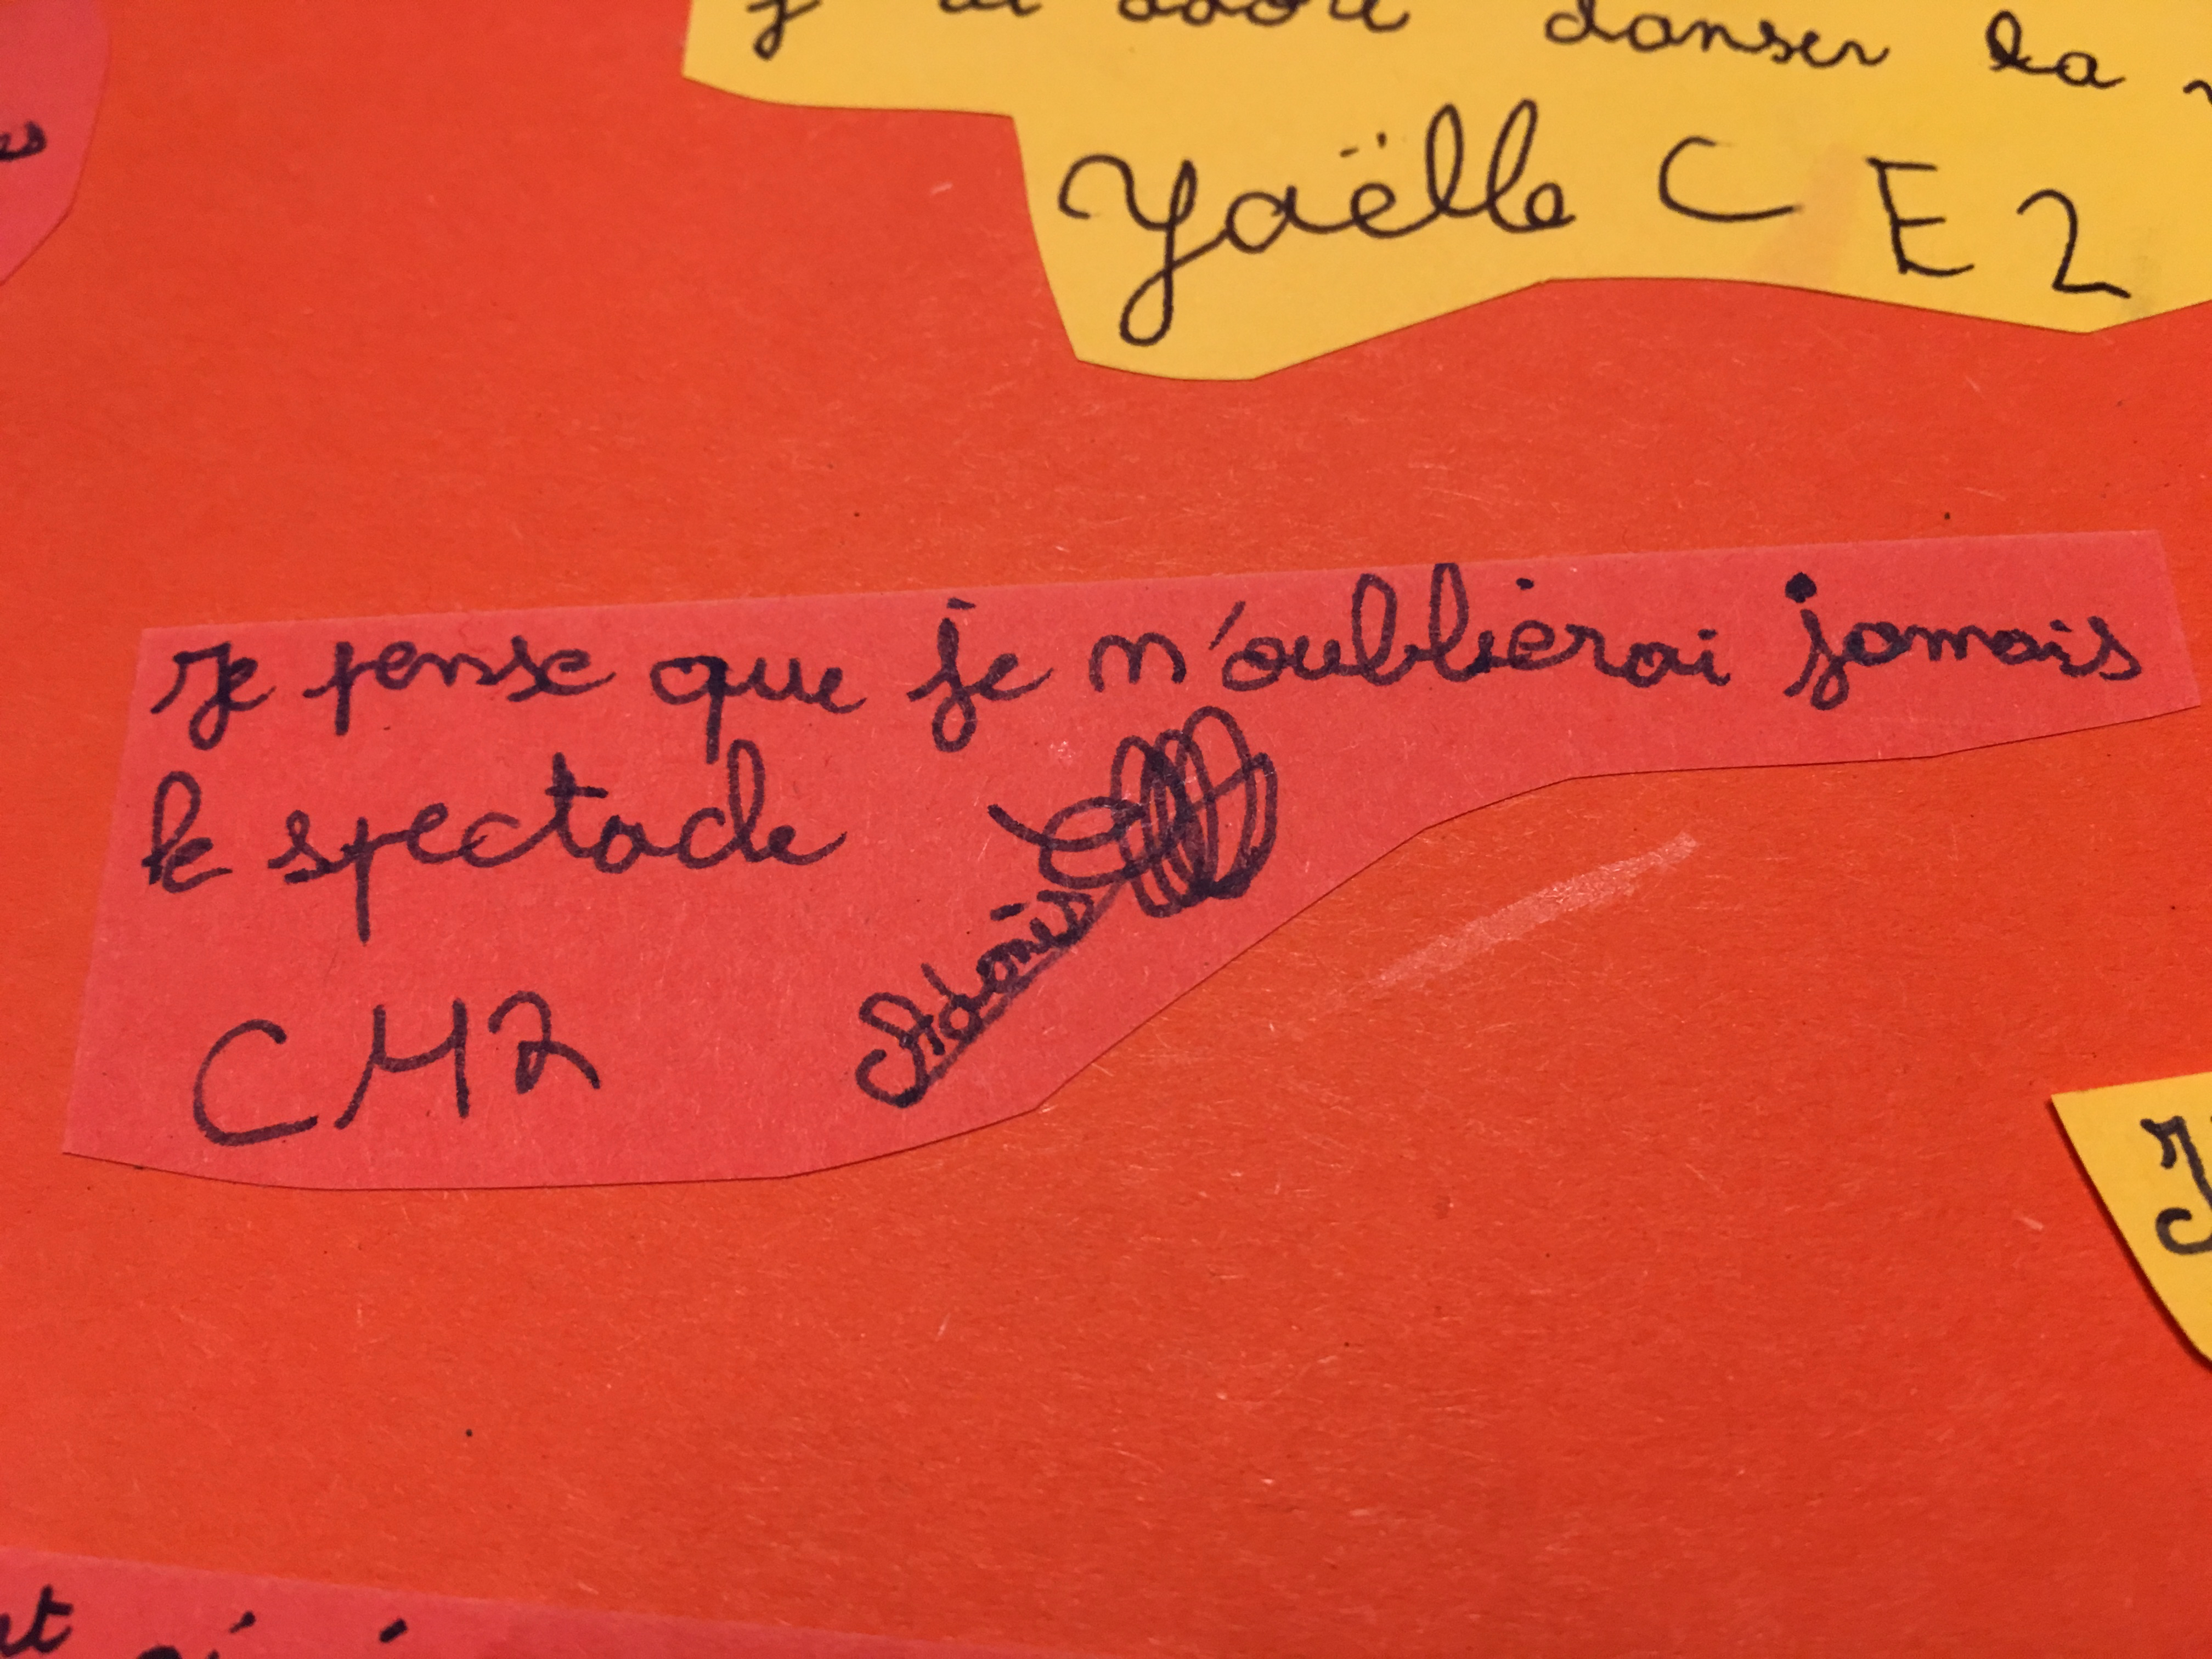 danser la
Yaëlle CE2
Je pense que je n'oublierai jamais
le spectacle
Adonis
CM2